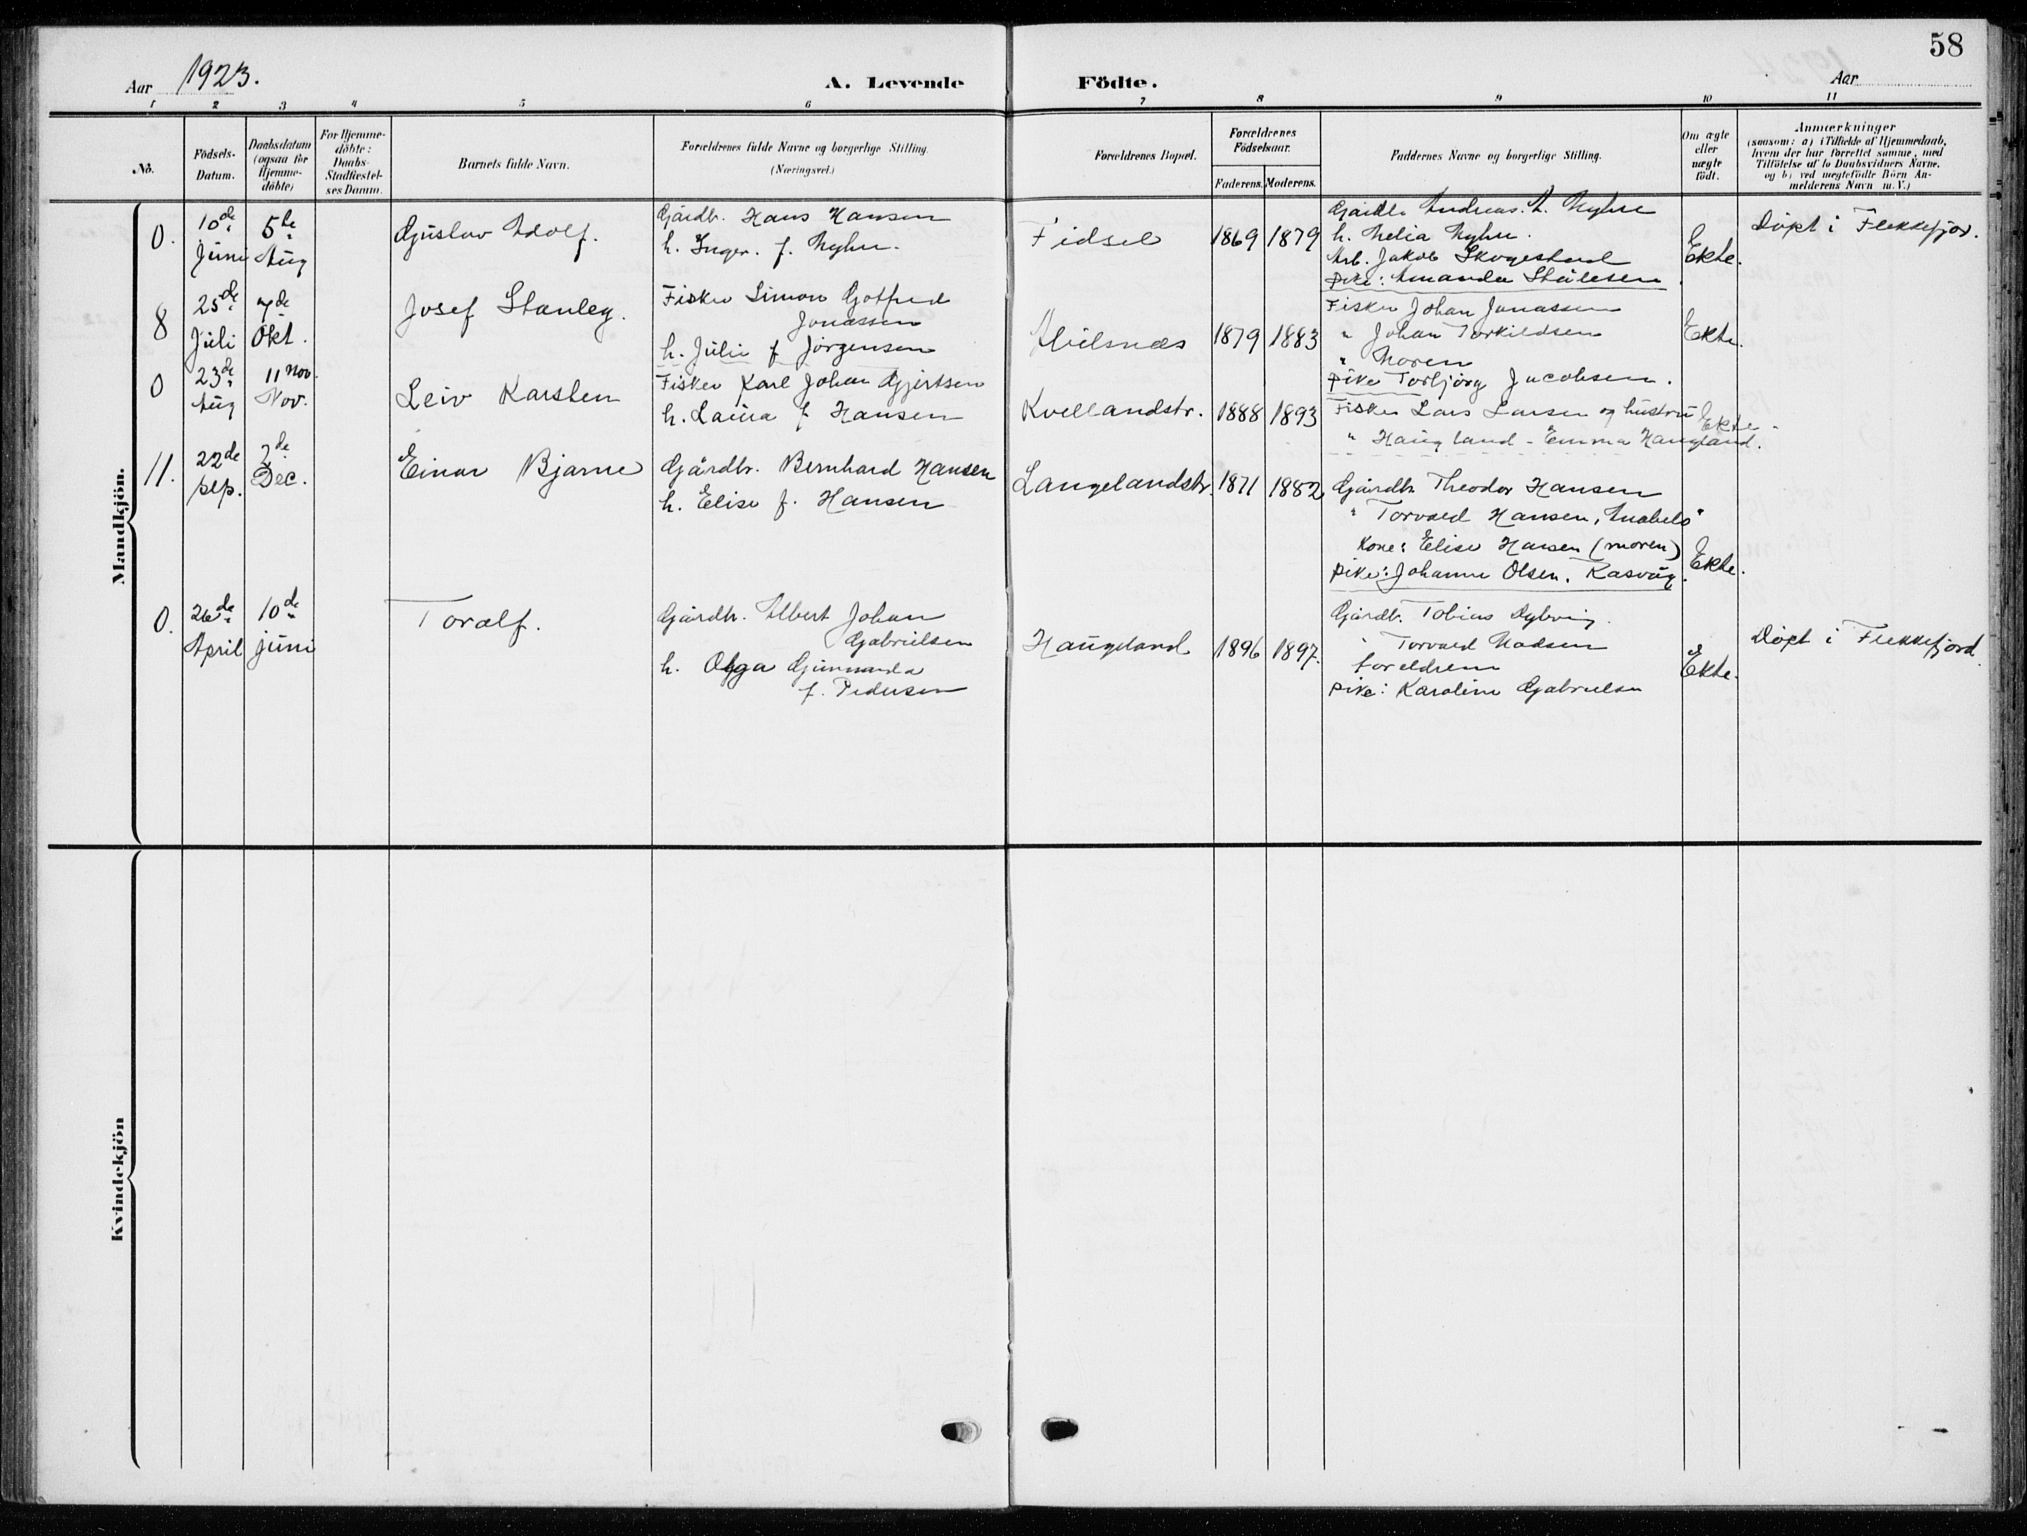 58
Aar 1923.
A. Levende Födte.
Aar
1 2 3 4 5 6 7 8 9 10 11
No.
Födsels-
Datum.
Daabsdatum
(ogsaa för
Hjemme-
döbte)
For Hjemme-
döbte:
Daabs-
Stadfæstel-
ses Datum.
Barnets fulde Navn.
Forældrenes fulde Navne og borgerlige Stilling.
(Næringsvei.)
Forældrenes Bopæl.
Forældrenes
Födselsaar.
Faderens. Moderens.
Faddernes Navne og borgerlige Stilling.
Om ægte
eller
uægte
födt.
Anmærkninger
(saasom: a) i Tilfælde af Hjemmedaab,
hvem der har forrettet samme, med
Tilföielse af to Daabsvidners Navne,
og b) ved uegtefödte Börn An-
melderens Navn m. V.)
Mandkjön.
0. 10de Juni 5te Aug
Gustav Adolf.
Gårdb. Hans Hansen
h. Inger. f. Nyhu.
Fidsel 1869 1879
Gårdb. Andreas. A. Nyhu
h. Melia Nyhu.
Arb. Jakob Skogestad
pike: Amanda Stålesen
Ekte.
Döpt i Flekkefjor.
8 25de Juli 7de Okt.
Josef Stanley.
Fisker Simon Gotfred
Jonassen
h. Julie f Jörgensen
Abilsnæs 1879 1883
Fisker Johan Jonassen
" Johan Torkildsen
" Moren
pike Torbjörg Jacobsen.
Ekte.
0 23de Aug 11 Nov. Nov.
Leiv Karsten
Fisker Karl Johan Gjertsen
h. Laura f Hansen
Kvellandstr. 1888 1893
Fisker Lars Larsen og hustru
" Haugland - Emma Haugland.
Ekte
11. 22de sep. 2de Dec.
Einar Bjarne
Gårdbr. Bernhard Hansen
h. Elise f. Hansen
Langelandstr. 1871 1882
Gårdb. Theodor Hansen
" Torvald Hansen,
Kone: Elise Hansen (moren)
pike: Johanne Olsen, Rasvåg.
Ekte.
0. 26de April 10de juni
Toralf.
Gårdb. Albert Johan
Gabrielsen
h. Olga Gunnanda
f. Pedersen
Haugeland 1896 1897.
Gårdb. Tobias Dybvig.
" Torvald Madsen
foreldrene
pike: Karoline Gabrielsen
Ekte.
Döpt i Flekkefjord.
Kvindekjön